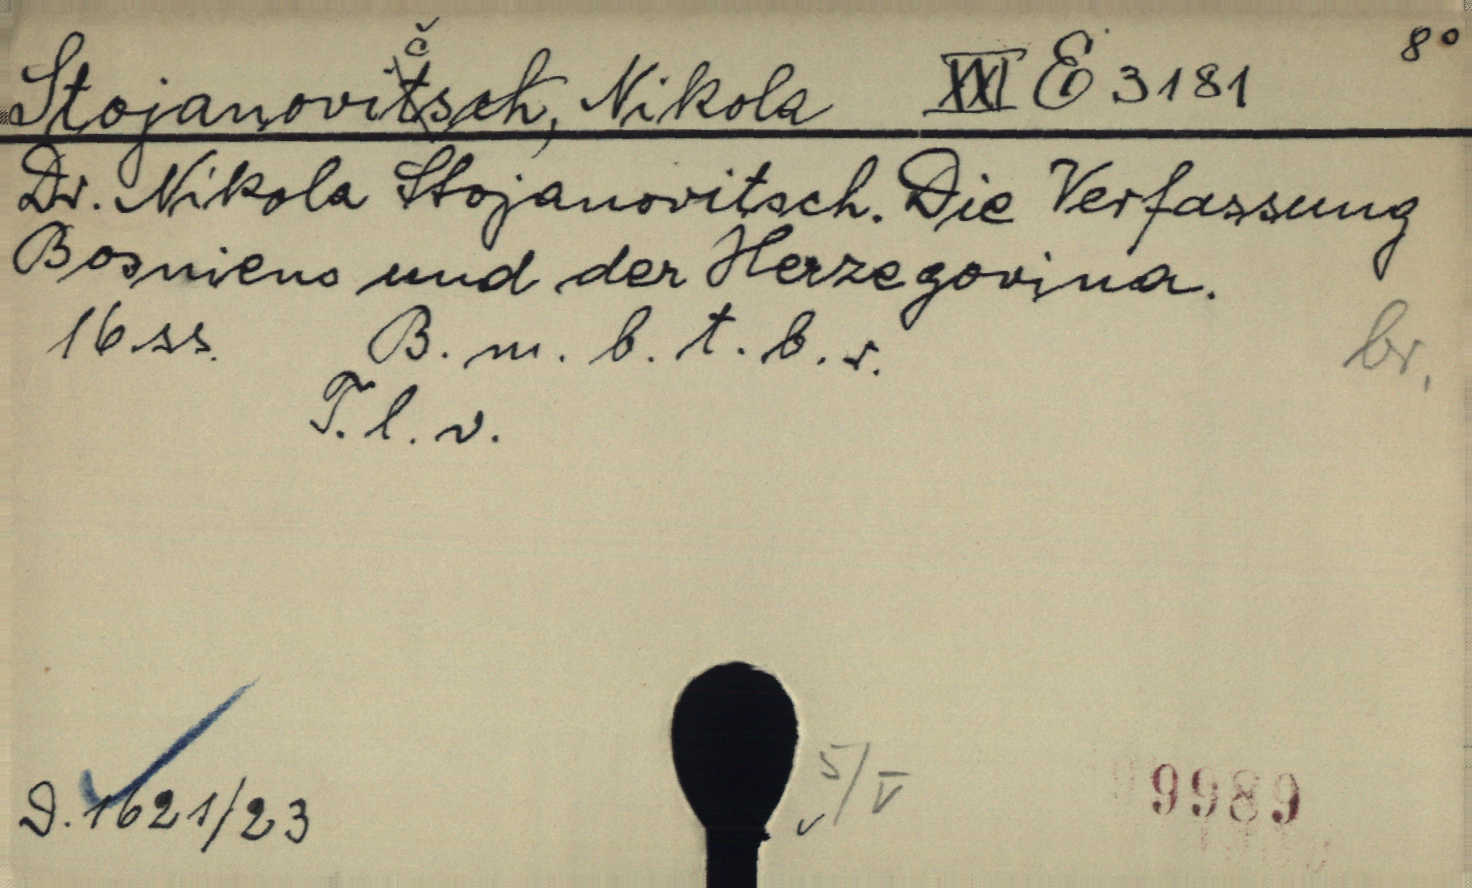 Stojanovitsch, Nikola XXI E 3181 8°
č
Dr. Nikola Stojanovitsch. Die Verfassung
Bosniens und der Herzegovina.
16 ss. B. m. b. t. b. r. br.
T. l. v.
D. 1621/23 5/V 9989